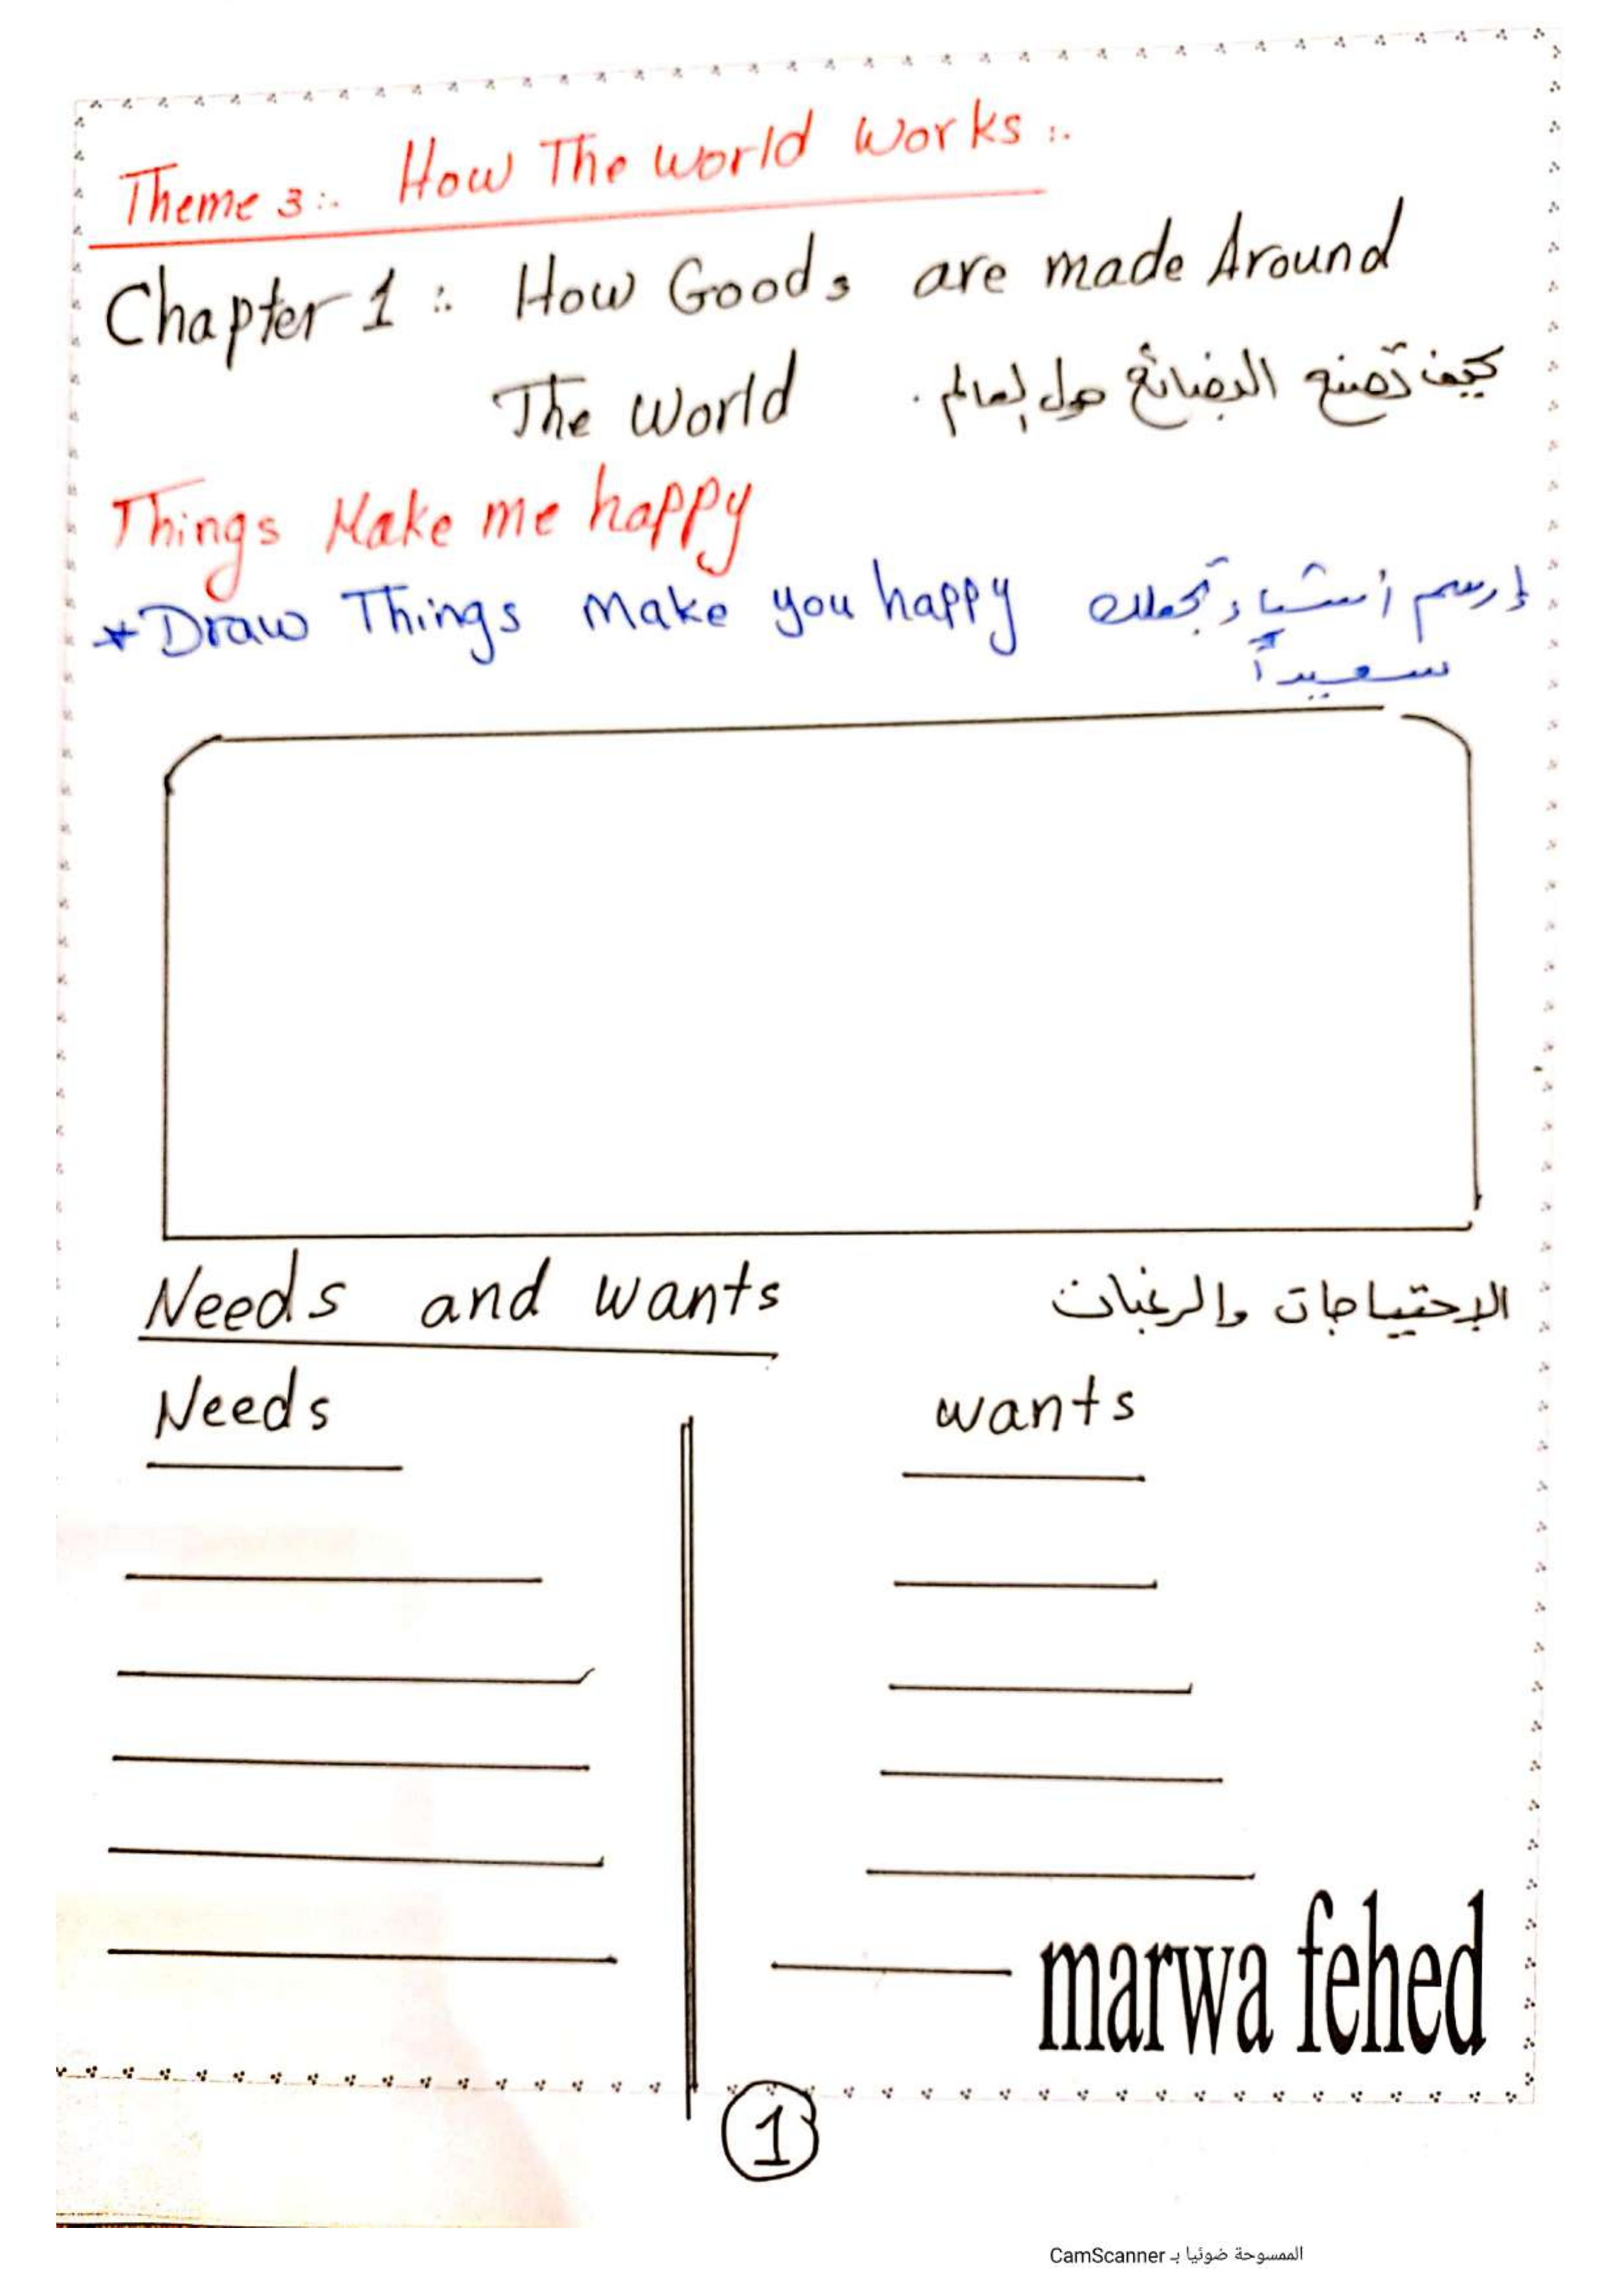 Theme 3:. How The world works :.
Chapter 1 :. How Goods are made Around
The world كيف تصنع البضائع حول العالم.
Things Make me happy
* Draw Things Make you happy إرسم أشياء تجعلك
سعيداً
Needs and wants الإحتياجات والرغبات
Needs wants
marwa fehed
1
الممسوحة ضوئيا بـ CamScanner